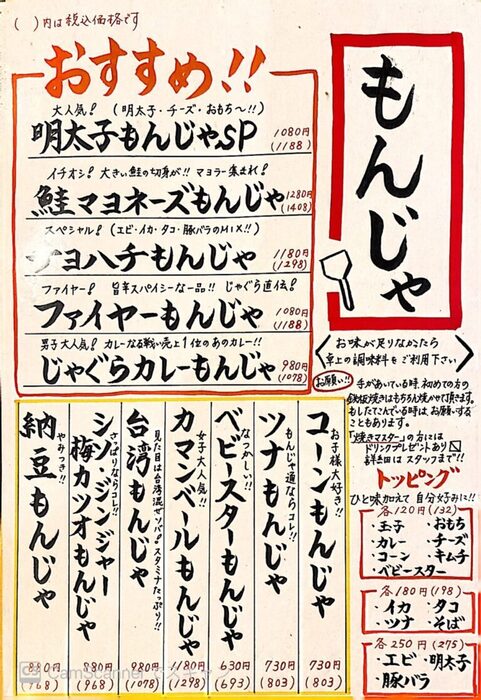 ( )内は税込価格です
もんじゃ
おすすめ!!
大人気! (明太子・チーズ・おもち〜!!)
明太子もんじゃSP 1080円 (1188)
イチオシ! 大きい鮭の切身が!! マヨラー集まれ!
鮭マヨネーズもんじゃ 1280円 (1408)
スペシャル! (エビ・イカ・タコ・豚バラのMIX!!)
ヨハチもんじゃ 1180円 (1298)
ファイヤー! 旨辛スパイシーな一品!! じゃぐら直伝!
ファイヤーもんじゃ 1080円 (1188)
男子大人気! カレーなる戦い売上1位のあのカレー!!
じゃぐらカレーもんじゃ 980円 (1078)
お味が足りなかったら
卓上の調味料をご利用下さい
お願い!! 手があいている時、初めての方の
鉄板焼きはもちろん焼かせて頂きます。
もしたてこんでいる時は、お願いする
こともあります。
「焼きマスター」の方には
ドリンクプレゼントあり
詳細はスタッフまで!!
トッピング
ひと味加えて自分好みに!!
各120円(132)
・玉子 ・おもち
・カレー ・チーズ
・コーン ・キムチ
・ベビースター
各180円(198)
・イカ ・タコ
・ツナ ・そば
各250円(275)
・エビ ・明太子
・豚バラ
お子様大好き!!
コーンもんじゃ 730円 (803)
もんじゃ道ならコレ!!
ツナもんじゃ 730円 (803)
なつかしい!!
ベビースターもんじゃ 630円 (693)
女子大人気!!
カマンベールもんじゃ 1180円 (1298)
見た目は台湾混ぜソバ。スタミナたっぷり!!
台湾もんじゃ 980円 (1078)
さっぱりならコレ!!
シソ・ジンジャー
梅カツオもんじゃ 880円 (968)
やみつき!!
納豆もんじゃ 880円 (968)
CamScanner でスキャン